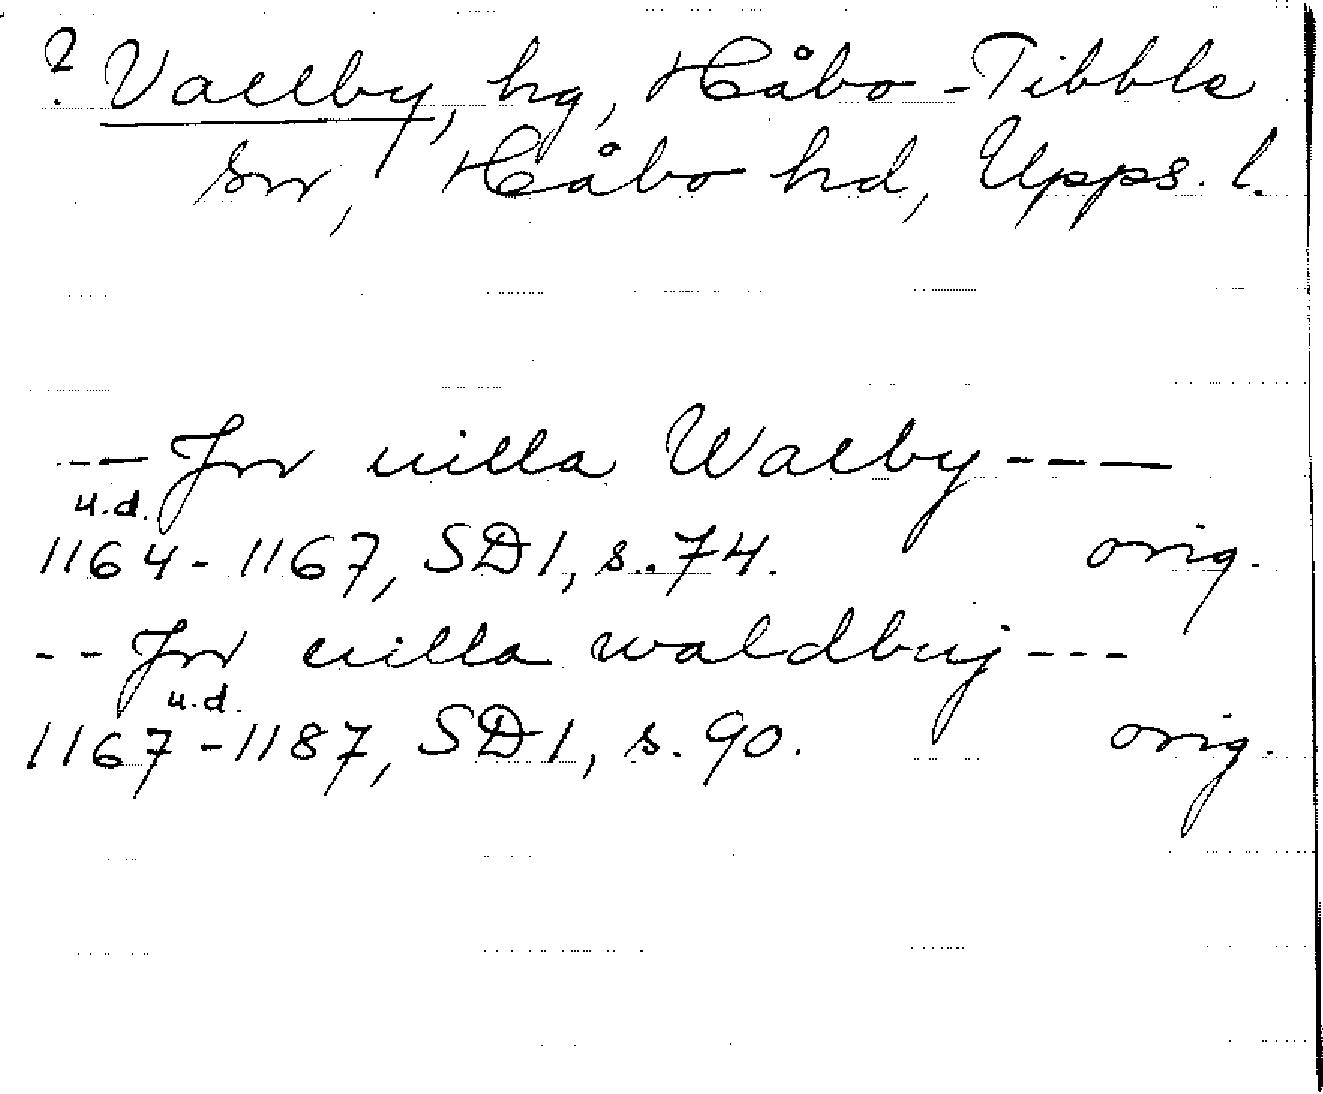 ? Vallby, hg, Håbo-Tibble
sn, Håbo hd, Upps. l.
--- Jn uilla Walby ---
u.d.
1164-1167, SD 1, s. 74. orig.
-- Jn uilla waldbuj ---
u.d.
1167-1187, SD 1, s. 90. orig.